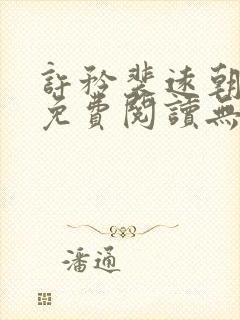 許矜裴速朝
免費閱讀無
潘通